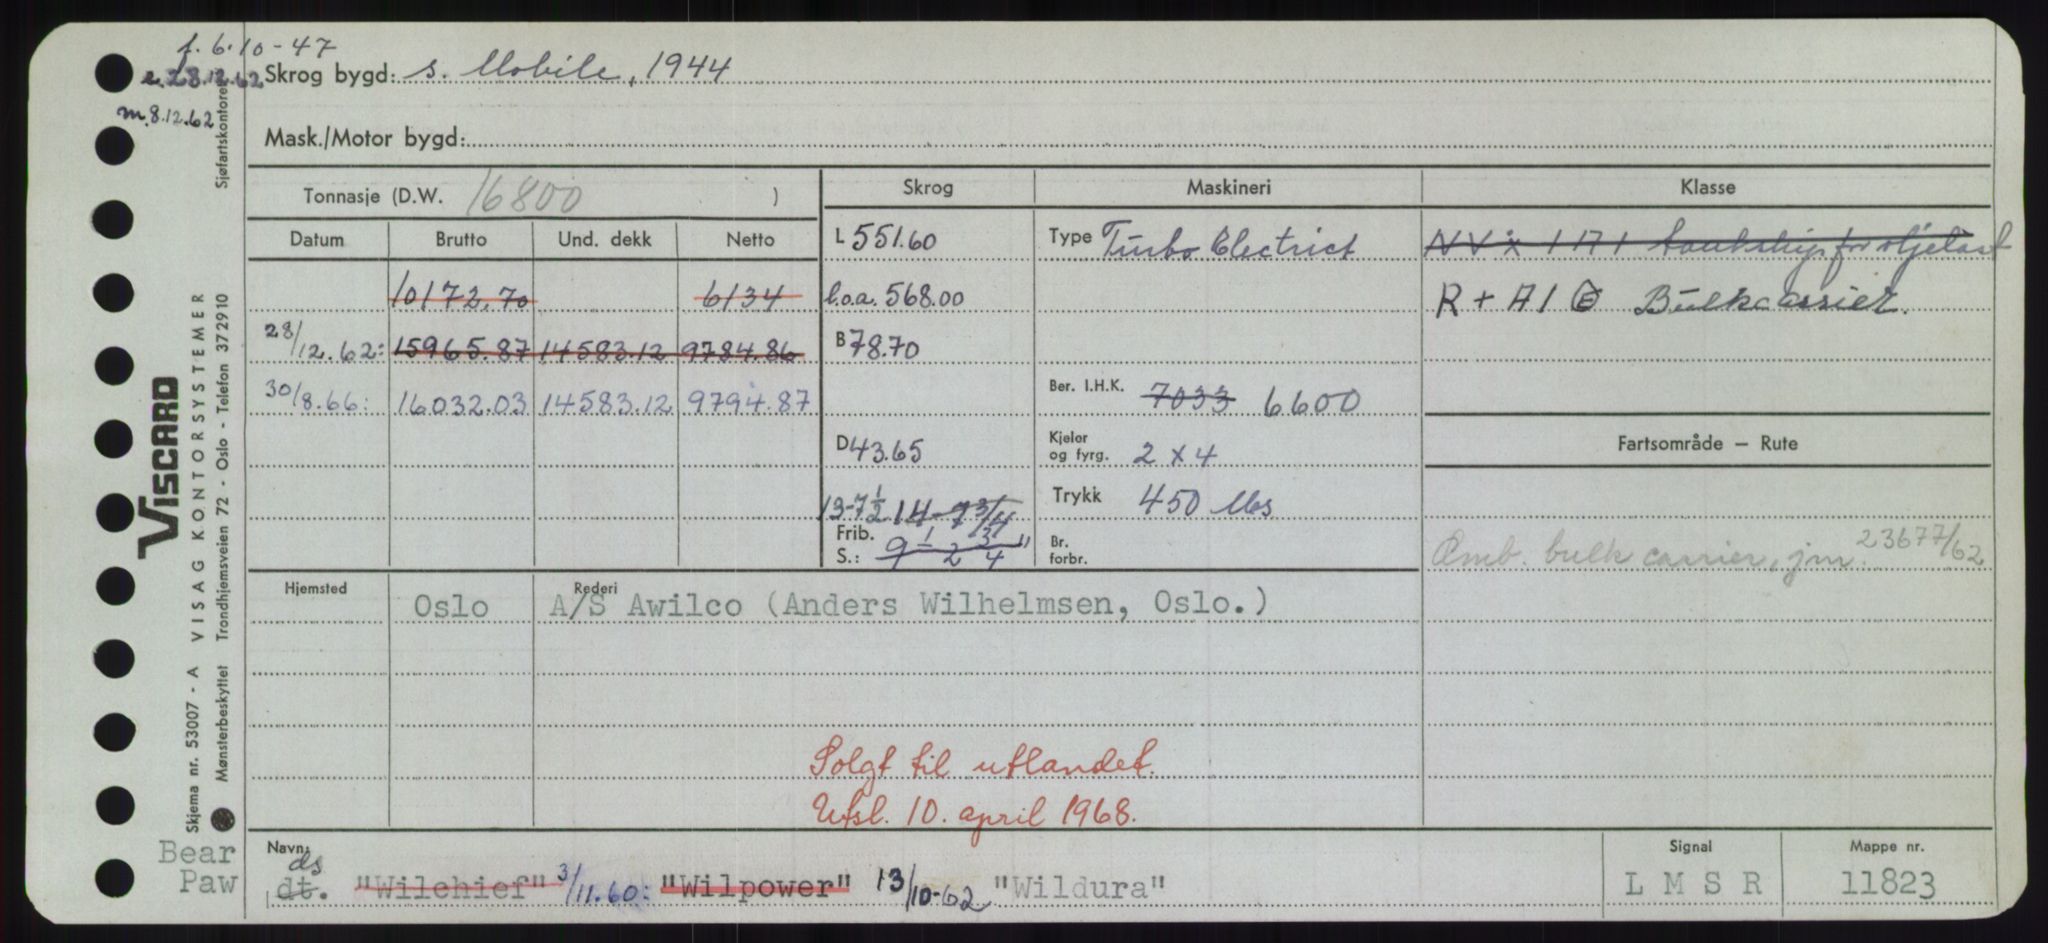 f. 6.10-47
e. 28.12.62
m. 8.12.62
Skrog bygd: s. Mobile, 1944
Mask./Motor bygd:
Tonnasje (D.W. 16800 )
Skrog
Maskineri
Klasse
Datum Brutto Und. dekk Netto
10172.70 6134
28/12.62: 15965.87 14583.12 9784.86
30/8.66: 16032.03 14583.12 9794.87
L 551.60
l.o.a. 568.00
B 78.70
D 43.65
13-7 1/2 14-7 3/4
Frib.
S.: 9 1/2 3/4"
Type Turbo Electrict
Ber. I.H.K. 7033 6600
Kjeler og fyrg. 2 x 4
Trykk 450 lbs
Br. forbr.
NV 1 1A1 Tankskip for oljelast
R + A1 Ⓔ Bulkcarrier.
Fartsområde – Rute
Omb. bulk carrier, jm. 23677/62
Hjemsted Oslo
Rederi A/S Awilco (Anders Wilhelmsen, Oslo.)
Solgt til utlandet.
Utsl. 10. april 1968.
Navn:
ds
dt. "Wilchief" 3/11.60: "Wilpower" 13/10-62 "Wildura"
Signal
L M S R
Mappe nr.
11823
Bear
Paw
VISCARD
VISAG KONTORSYSTEMER
Skjema nr. 53007 - A
Mønsterbeskyttet Trondhjemsveien 72 - Oslo - Telefon 372910
Sjøfartskontoret